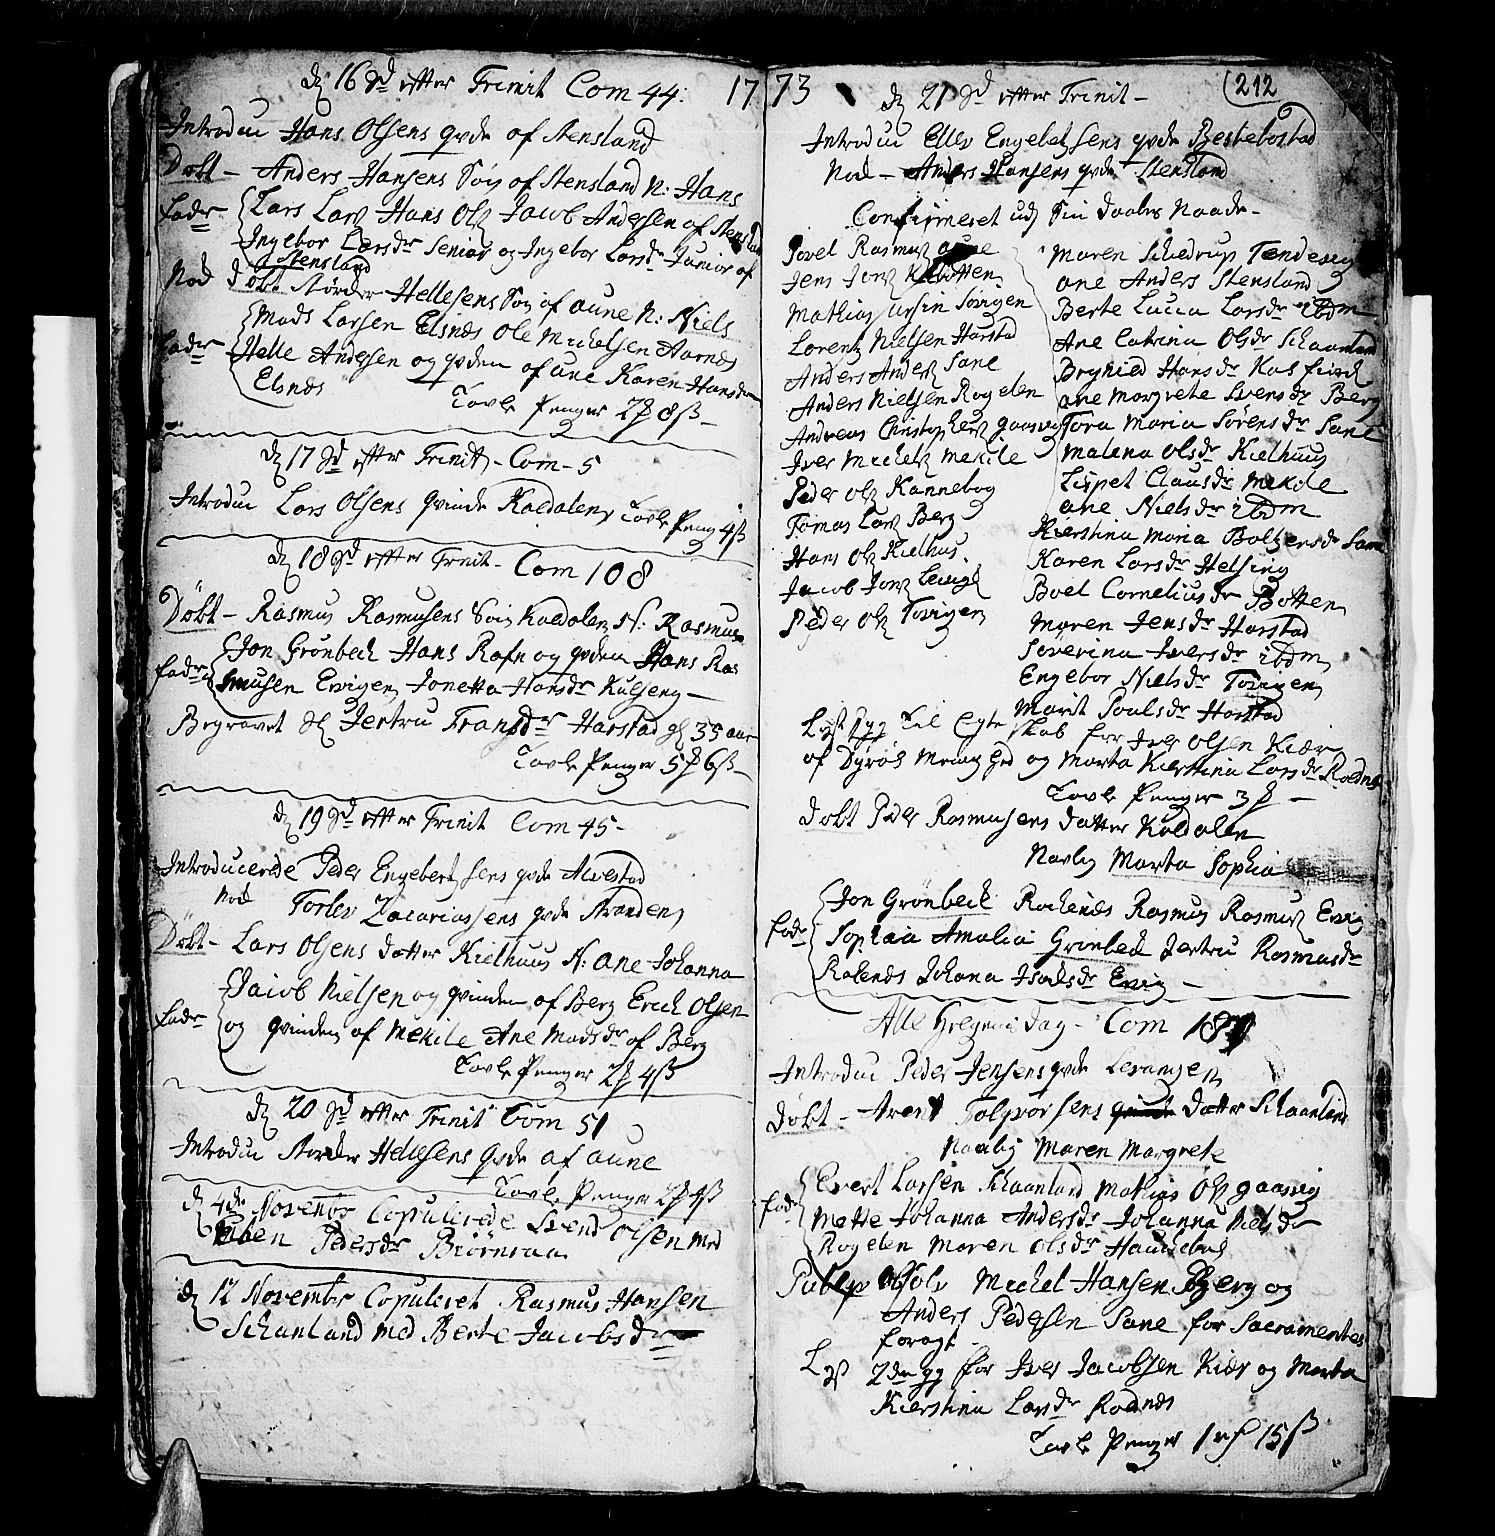 17 73
212
d 16 Sd efter Trinit Com 44.
Introdu Hans Olsens qvde af Stensland
Døbt - Anders Hansens Søn af Stensland N: Hans
fadr Lars Lars Hans Ols Jacob Andersen af Stensland
Ingebor Larsdr Senior og Ingebor Larsdr Junior af
Stensland
Nod Døbt Størcker Hellesens Søn af aune N: Niels
Mads Larsen Elsnes Ole Michelsen Aarnes
fadr Helle Andersen og qvden af aune Karen Hansdr
Elsnes
Tavle Penger 2 8 ß
d 17 Sd efter Trinit - Com - 5
Introdu Lars Olsens qvinde Kaldalen Tavle Peng 4 ß
d 18 Sd efter Trinit - Com 108
Døbt - Rasmus Rasmusens Søn Kaldalen N: Rasmus
fadr Jon Grønbech Hans Rafn og qvden Hans Ras
musen Ervigen Jonetta Hansdr Kulseng -
Begravet Jertru Fransdr Harstad gl 35 aar
Tavle Penger 5 6 ß
d 19 Sd efter Trinit Com 45 -
Introducerede Peder Engebertsens qvde Alvestad
Nod Torlev Zacariassens qvde Stranden
Døbt - Lars Olsens datter Kielhuus N: ane Johanna
Jacob Nielsen og qvinden af Berg Erich Olsen
fadr og qvinden af Mekile Ane Madsdr af Berg
Tavle Penger 2 4 ß
d 20 Sd efter Trinit Com 51
Introdu Størcker Hellesens qvde af aune
Tavle Penger 2 4 ß
d 4de Novembr Copulerede Svend Olsen med
Pedersdr Biørnraa
d 12 Novembr Copuleret Rasmus Hansen
Schanland med Berte Jacobsdr
d 21 Sd efter Trinit -
Introdu Ellev Engebretsens qvde Bestebostad
Nod - Anders Hansens qvde Stensland
Confirmeret ud Sin Daabes Naade -
Povel Rasmus aune
Jens Jons Kilbotten
Mathias Ursin Torigen
Lorentz Nielsen Harstad
Anders Anders Sane
Anders Nielsen Rogelen
Andreas Christophers gaasvog
Iver Michels Mekile
Peder Ols Kannebog
Tomas Lars Berg
Hans Ols Kielhus
Jacob Jons
Peder Ols Torigen
Maren Schedrup Tendevig
ane Anders Stensland
Berte Lucia Larsdr ibdm
Ane Catrina Olsdr Schaanland
Brynild Hansdr Kasfiord
ane Margrete Svensdr Berg
Tora Maria Sørensdr Sane
Malena Olsdr Kielhuus
Lispet Clausdr Mekile
ane Nielsdr ibdm
Kierstina Maria Boltzersdr Sane
Karen Larsdr Helsing
Boel Corneliusdr Botten
Maren Jensdr Harstad
Severina Iversdr ibdm
Engebor Nielsdr Torigen
Marit Poulsdr Harstad
Lyst Til Egteskab for Iver Olsen Kiær
af Dyrøe Menig Hed og Marta Kierstina Larsdr Rodnes
Tavle Penger 3 -
Døbt Peder Rasmusens datter Kaldalen
Navlg Marta Sophia
Jon Grønbeck Rochenes Rasmus Rasmus Ervig
fadr Sophia Amalia Grønbech Jertru Rasmusdr
Rolenes Johana Isachsdr Ervig -
Alle Helgens Dag - Com 187
Introdu Peder Jensens qvde Levangen
Døbt - Arent Tolgvorsens datter Schaanland
Navlg Maren Margrete
Evert Larsen Schaanland Mathis Ols gaasvig
fadr Mette Johanna Andersdr Johanna Nielsdr
Rogelen Maren Olsdr Hauchebøe
Publ Absolv Michel Hansen Berg og
Anders Pedersen Sane for Sacramentes
foragt -
Lyst 2den gg for Iver Jacobsen Kiær og Marta
Kierstina Larsdr Rodnes
Tavle Penger 1 15 ß